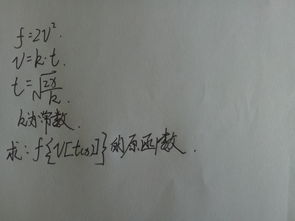 f=2v².
v=k·t.
t=√(2x/k).
k为常数.
求: f{v[t(x)]} 的原函数.